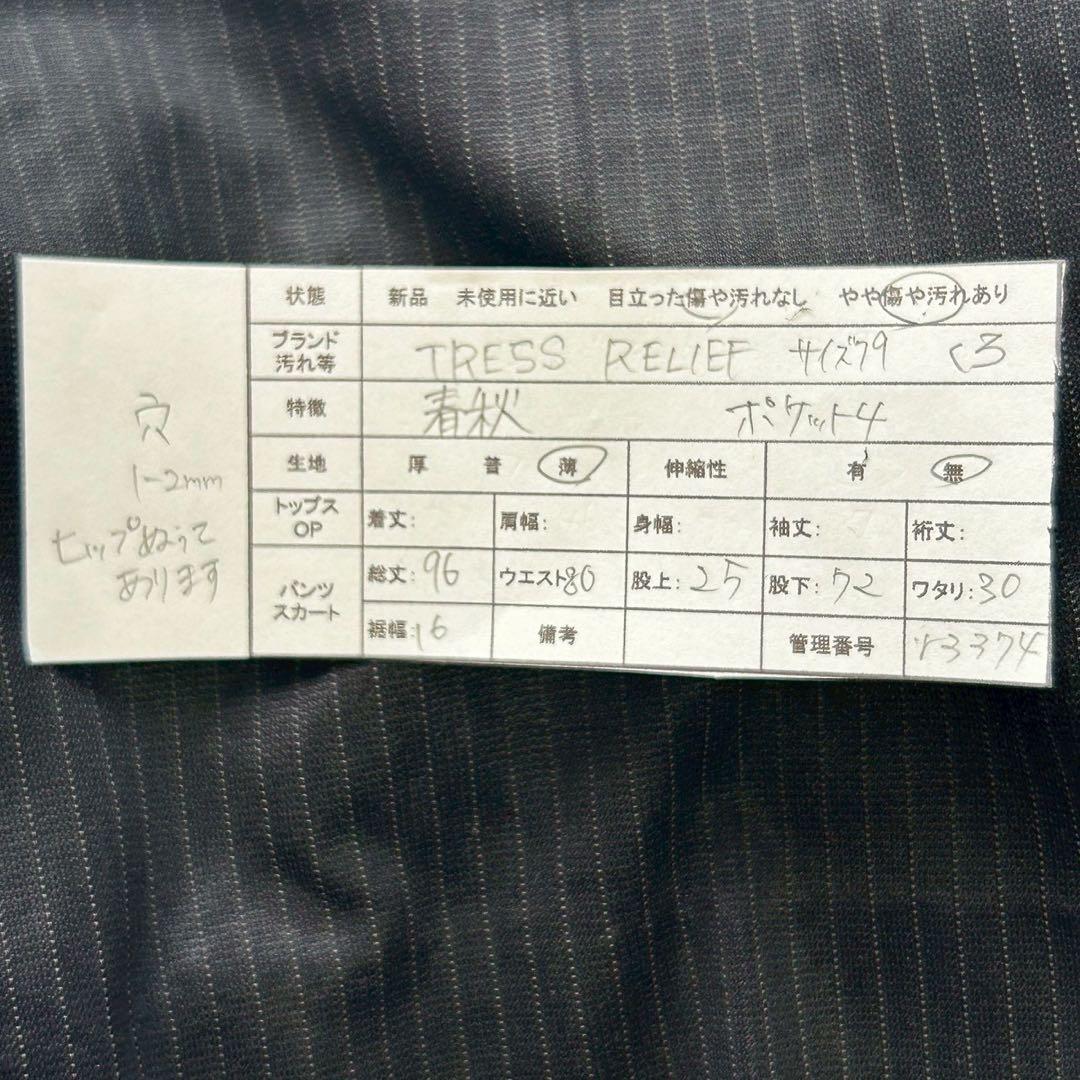 穴
1-2mm
ヒップぬって
あります
状態 新品 未使用に近い 目立った傷や汚れなし やや傷や汚れあり
ブランド
汚れ等 TRESS RELIEF サイズ79 くろ
特徴 春秋 ポケット4
生地 厚 普 薄 伸縮性 有 無
トップス
OP 着丈: 肩幅: 身幅: 袖丈: 裄丈:
パンツ
スカート
総丈:96 ウエスト80 股上:25 股下:72 ワタリ:30
裾幅:16 備考 管理番号 3374